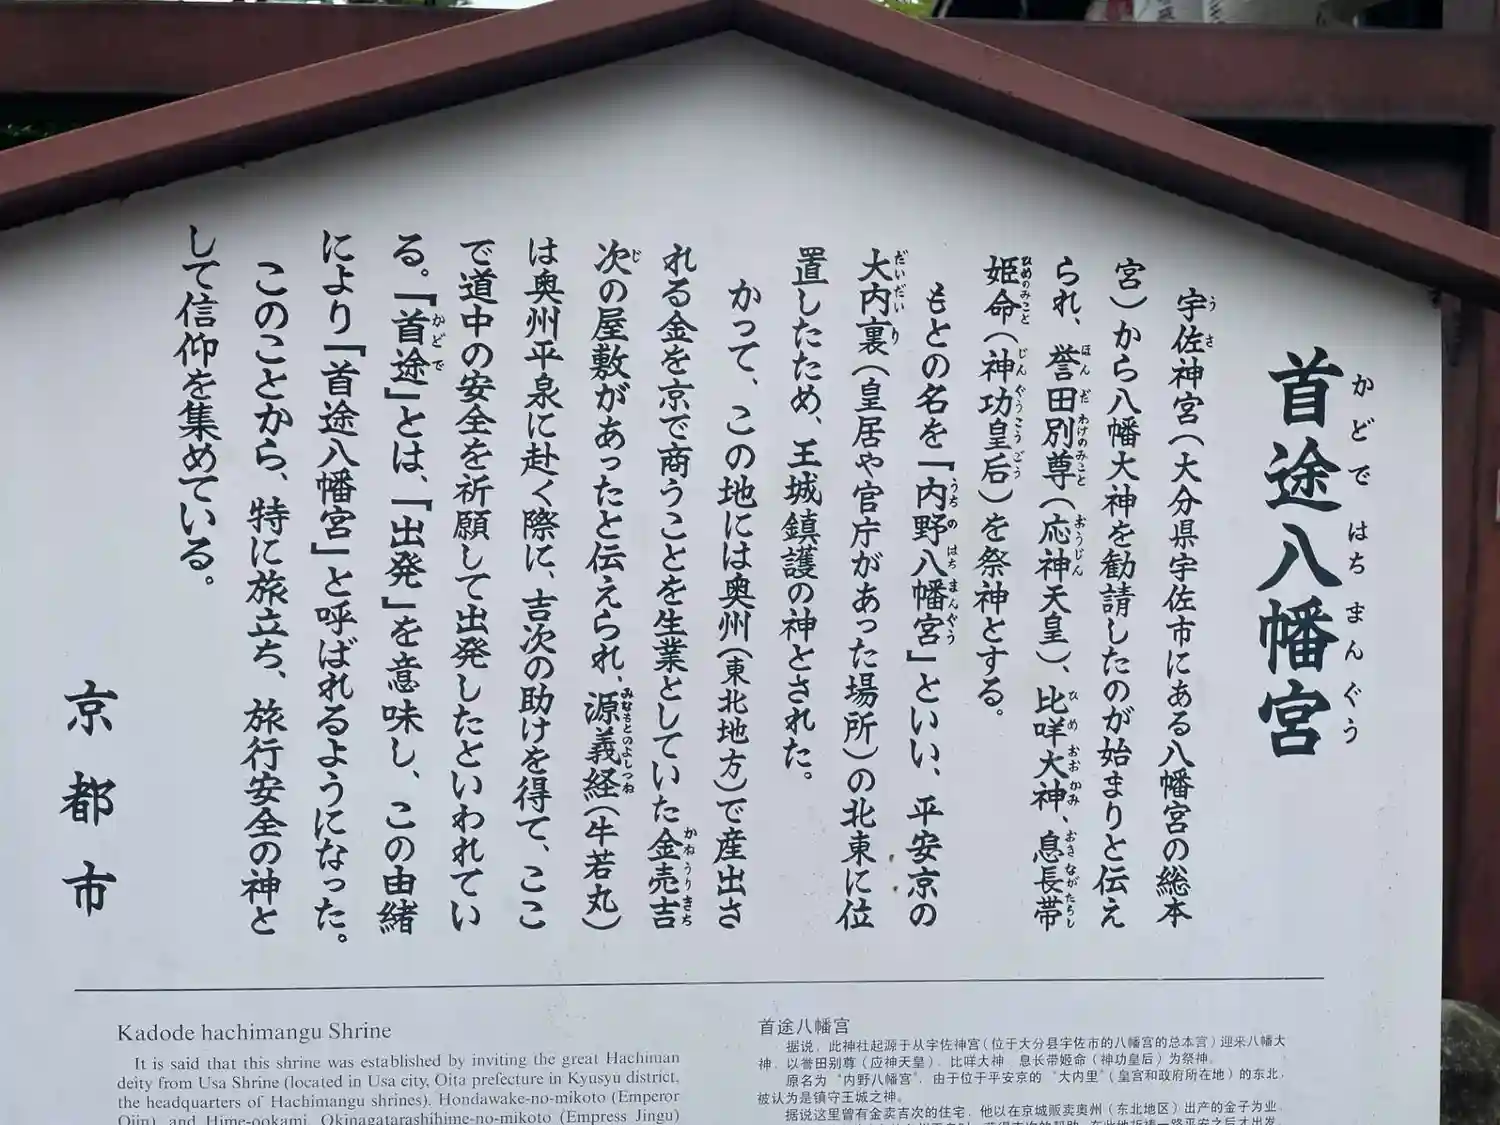 首途八幡宮
かどではちまんぐう
宇佐神宮（大分県宇佐市にある八幡宮の総本
宮）から八幡大神を勧請したのが始まりと伝え
られ、誉田別尊（応神天皇）、比咩大神、息長帯
姫命（神功皇后）を祭神とする。
もとの名を「内野八幡宮」といい、平安京の
大内裏（皇居や官庁があった場所）の北東に位
置したため、王城鎮護の神とされた。
かって、この地には奥州（東北地方）で産出さ
れる金を京で商うことを生業としていた金売吉
次の屋敷があったと伝えられ、源義経（牛若丸）
は奥州平泉に赴く際に、吉次の助けを得て、ここ
で道中の安全を祈願して出発したといわれてい
る。「首途」とは、「出発」を意味し、この由緒
により「首途八幡宮」と呼ばれるようになった。
このことから、特に旅立ち、旅行安全の神と
して信仰を集めている。
京都市
Kadode hachimangu Shrine
It is said that this shrine was established by inviting the great Hachiman
deity from Usa Shrine (located in Usa city, Oita prefecture in Kyusyu district,
the headquarters of Hachimangu shrines). Hondawake-no-mikoto (Emperor
Ojin), and Hime-ookami, Okinagatarashihime-no-mikoto (Empress Jingu)
首途八幡宮
据说，此神社起源于从宇佐神宫（位于大分县宇佐市的八幡宫的总本宫）迎来八幡大
神，以誉田别尊（应神天皇）、比咩大神、息长带姬命（神功皇后）为祭神。
原名为“内野八幡宫”，由于位于平安京的“大内里”（皇宫和政府所在地）的东北，
被认为是镇守王城之神。
据说这里曾有金卖吉次的住宅，他以在京城贩卖奥州（东北地区）出产的金子为业，